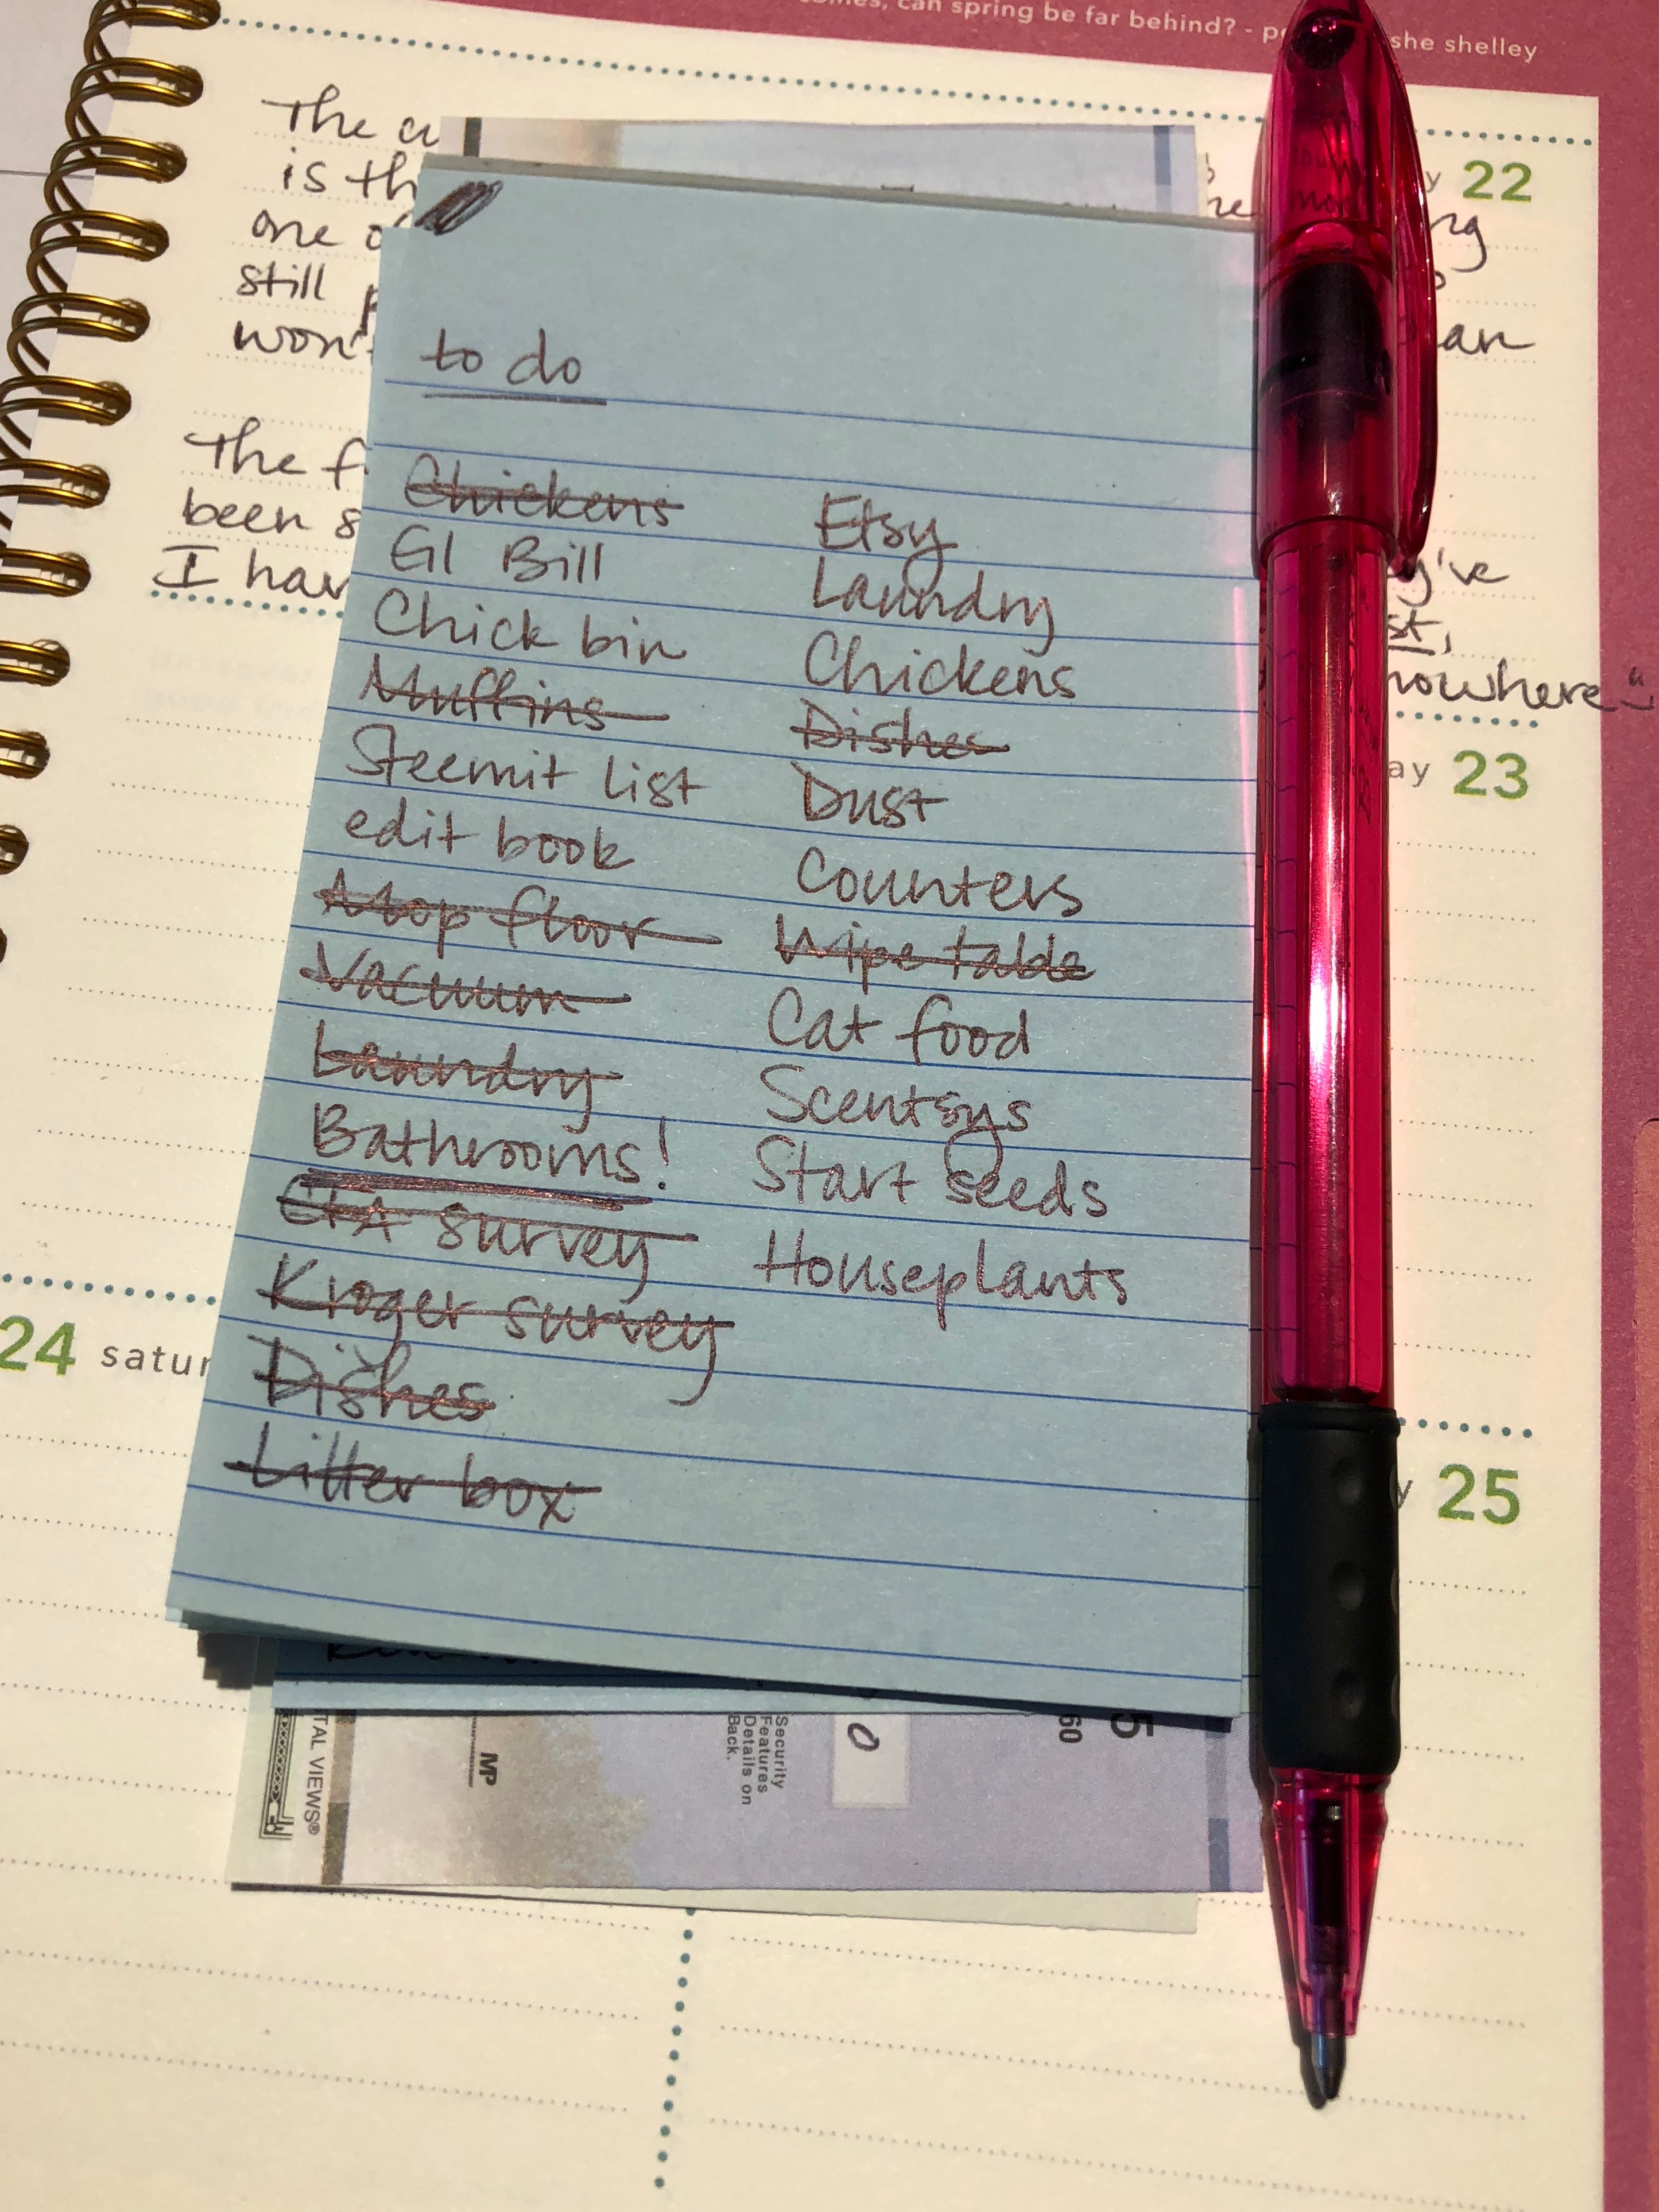 can spring be far behind? - she shelley
22
The
is th
one
still
won't
an
The f
been s
I hav
g''ve
st,
nowhere
23
24 satur
25
to do
Chickens
GI Bill
Chick bin
Muffins
Steemit list
edit book
Mop floor
Vacuum
Laundry
Bathrooms!
CFA survey
Kroger survey
Dishes
Litter box
Etsy
Laundry
Chickens
Dishes
Dust
Counters
Wipe table
Cat food
Scentsys
Start seeds
Houseplants
TAL VIEWS®
MP
Security
Features
Details on
Back.
0
60
5